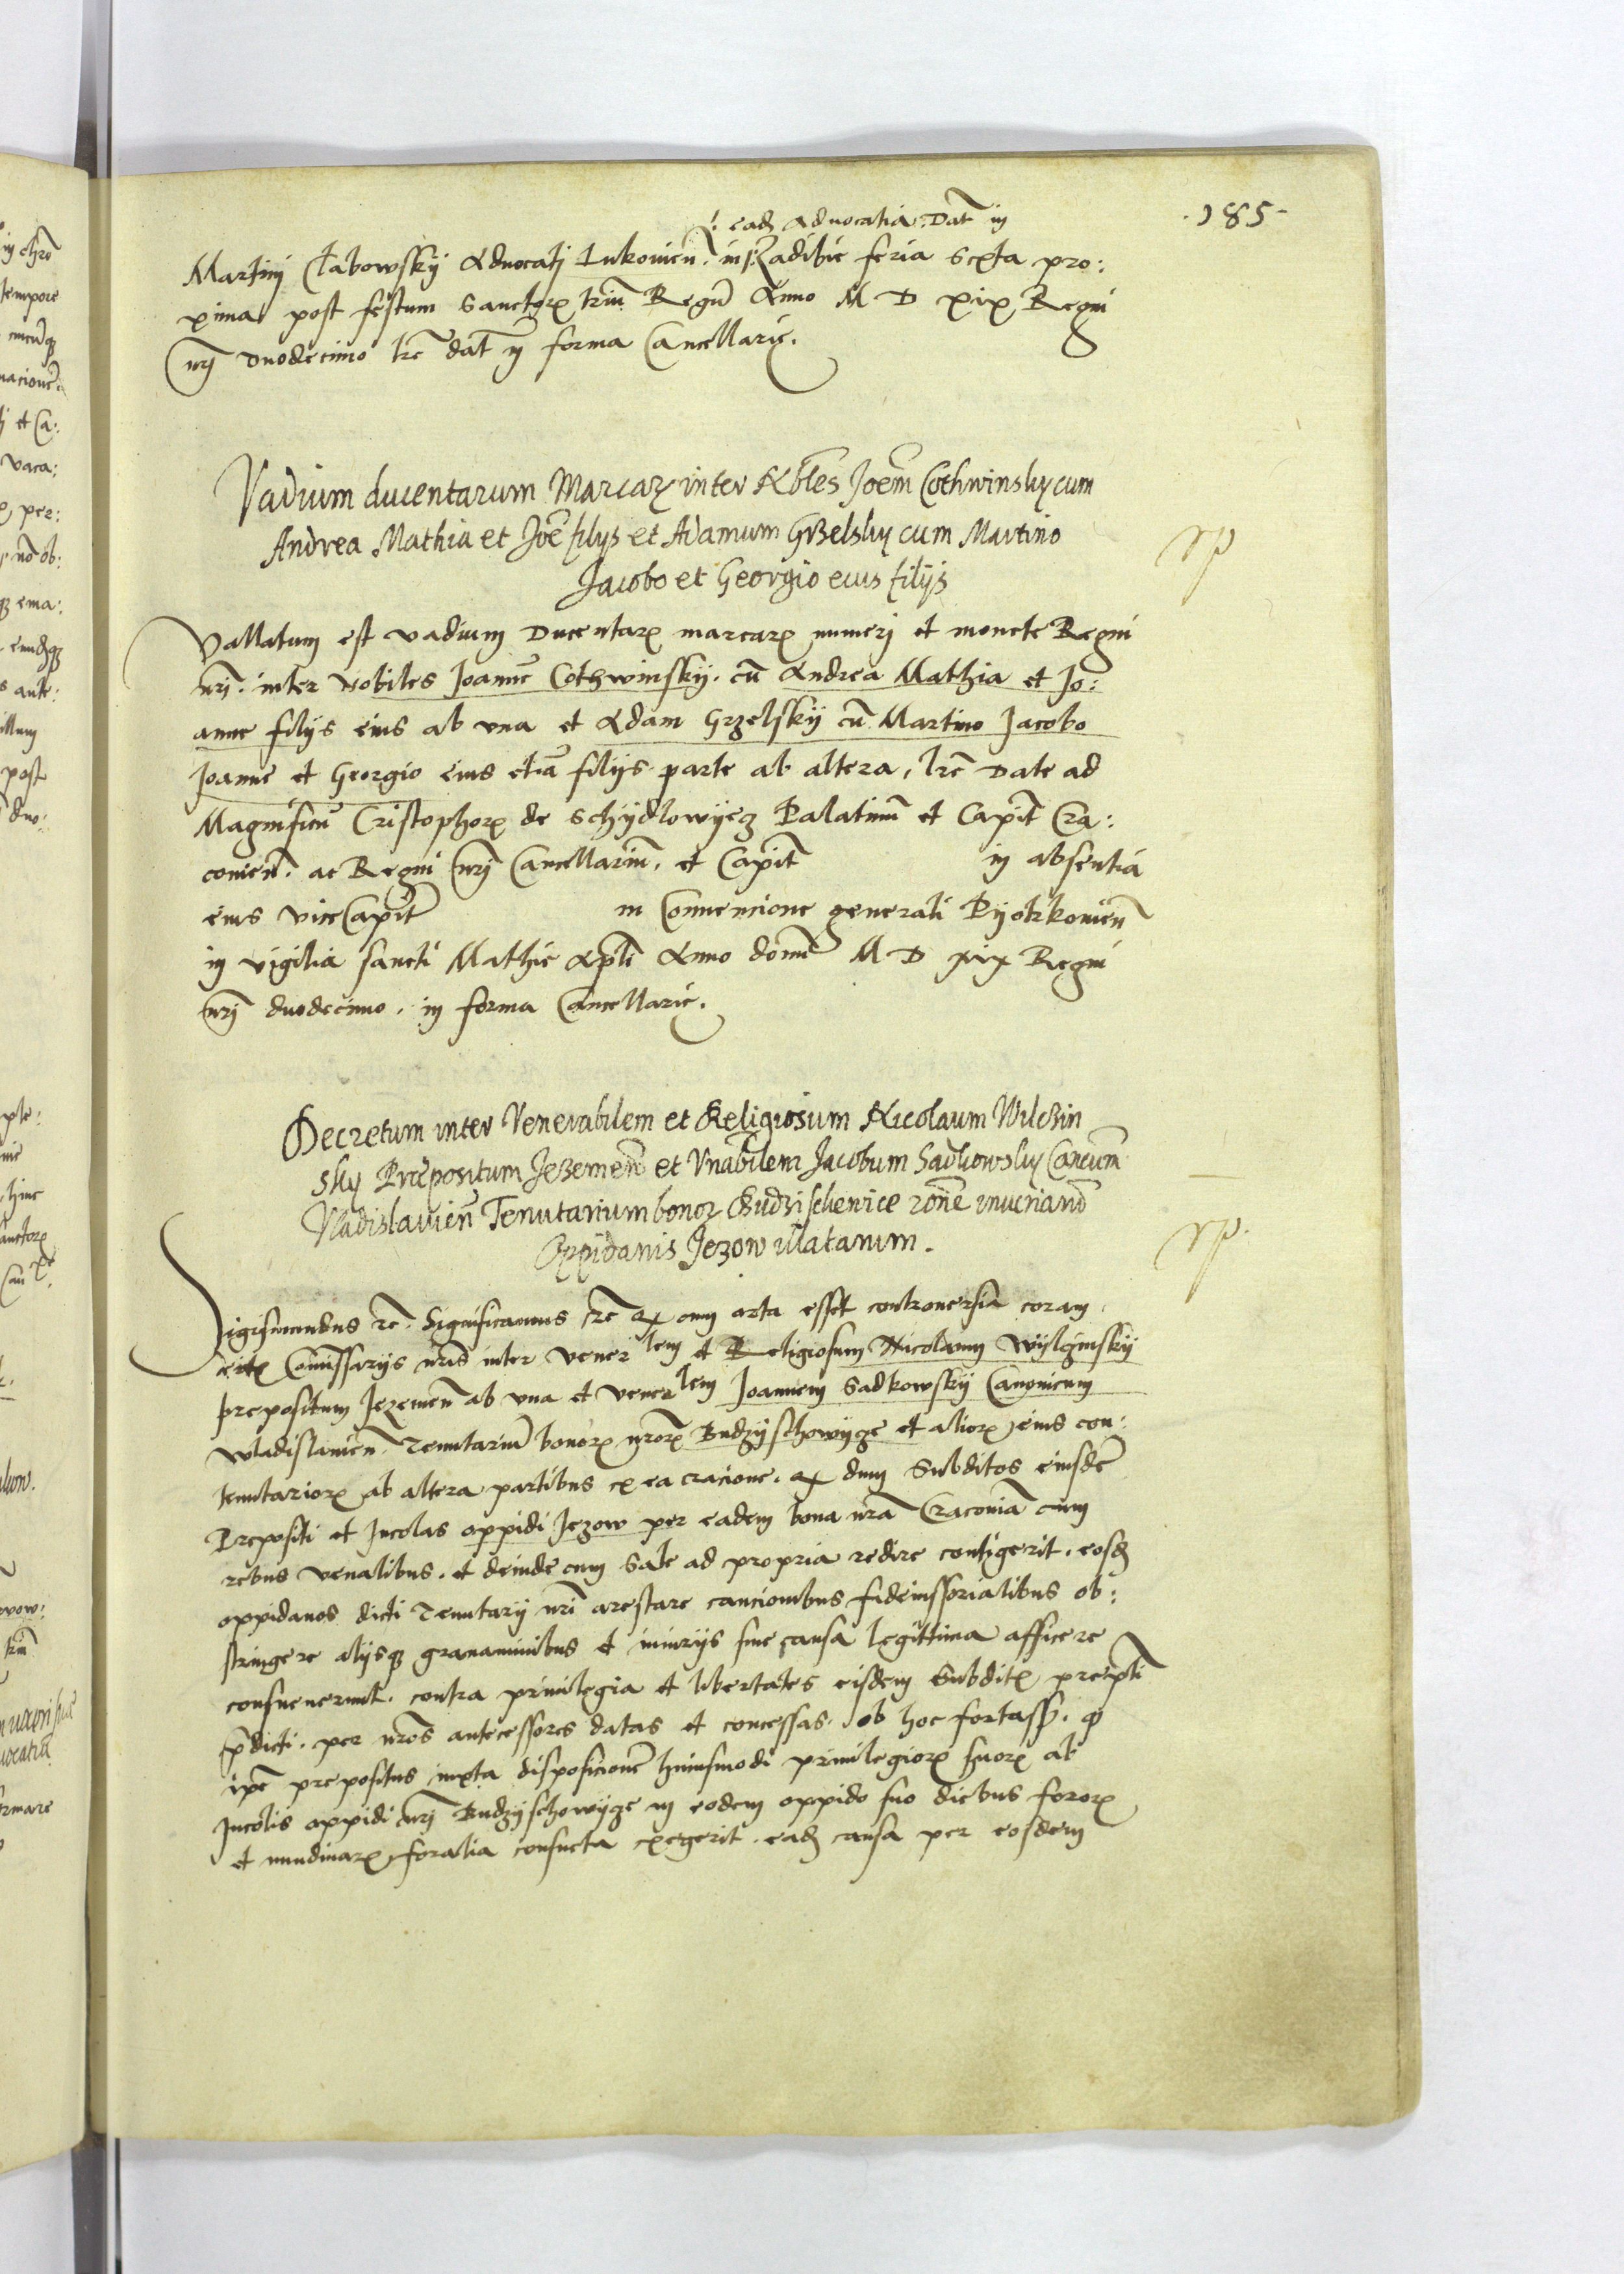 185
eadem Advocatia. Dat in
Martinj Clabowsskÿ Advocatj Lukovieñ. in Radibie feria Sexta pro:
xima post festum Sanctorꝝ triũ Regũ Anno M D xix Regni
nrĩ duodecimo trẽ dat in forma Cancellarie.
Vadium ducentarum Marcaꝝ inter Nobles Joem̃ Cothwinsky cum
Andrea Mathia et Joẽ filys et Adamum Grzelsky cum Martino
Jacobo et Georgio eius filijs
Vallatum est vadium Ducentarꝝ marcarꝝ numerj et monete Regni
nrĩ. inter Nobiles Joannẽ Cothwinskÿ. cũ Andrea Mathia et Jo:
anne filÿs eius ab vna et Adam Grzelskÿ cũ Martino Jacobo
Joanne et Georgio eius etiã filÿs parte ab altera, lrẽ Date ad
Magnificũ Cristophorꝝ de Schÿdlowÿecz Palatinũ et Capit̃ Cra:
covieñ. ac Regni nrĩ Cancellariũ. et Capit̃ in absentia
eius viceCapit̃ in Convencione generali Pÿotrkovieñ
in vigilia sancti Mathie Apl̃i Anno domĩ M D xix Regni
nrĩ duodecimo. in forma Cancellarie.
Decretum inter Venerabilem et Religiosum Nicolaum Wilczin
sky Præpositum Jezeweñ et Vnabilem Jacobum Sadkowsky Canicum
Vladislavieñ Tenutarium bonoꝝ Budzischewice rone iniuriarũ
Oppidanis Jezow illatarum.
Sigismundus rẽ. Significamus trẽ qꝫ cum orta esset controversia coram
certꝭ Comissarÿs nrĩs inter vener lem et Religiosum Nicolaum Wÿlczinskÿ
prepositum Jezeweñ ab vna et vener lem Joannem Sadkowskÿ Canonicum
Wladislavieñ. Tenutariũ bonorꝝ nrorꝝ Budzÿschowÿcze et aliorꝝ eius con:
tenutariorꝝ ab altera partibus ex ea racione. qꝫ dum Subditos eiusdẽ
Prepositi et Incolas oppidi Jezow per eadem bona nrã Cracoviã cum
rebus venalibus. et deinde cum Sale ad propria redire contigerit. eosdem
oppidanos dicti Tenutarÿ nrĩ arestare caucionibus fideiussorialibus ob:
stringere alÿsqꝫ gravaminibus et iniurÿs sine causa legittima afficere
consueverunt. contra privilegia et libertates eisdem Subditꝭ prepti
p̃dicti. per nrõs antecessores datas et concessas. ob hoc fortassẽ. qꝫ
ipẽ prepositus iuxta disposicionẽ huiusmodi privilegiorꝝ suorꝝ ab
Incolis oppidi nrĩ Budzÿschowÿcze in eodem oppido suo diebus fororꝝ
et nundinarꝝ foralia consueta exegerit. eadem causa per eosdem